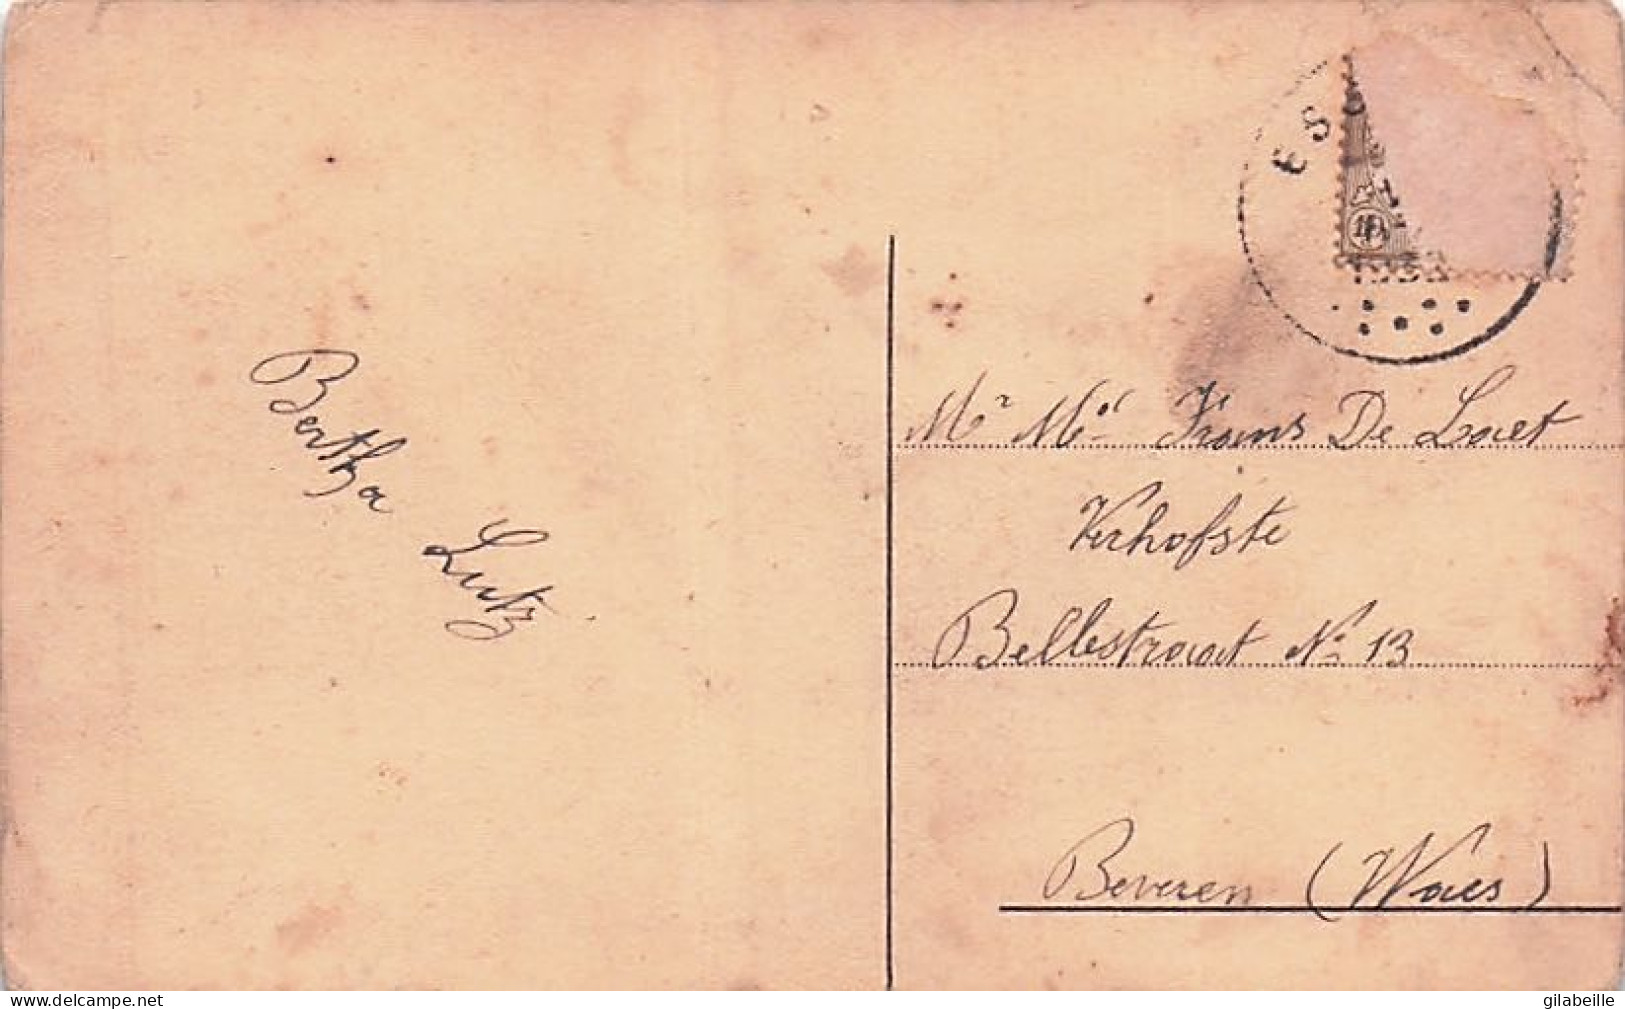 Bertha
Lutz
ES
10
Mr Me Frans De Laet
Verhofste
Bellestraat No 13
Beveren (Waes)
www.delcampe.net
gilabeille